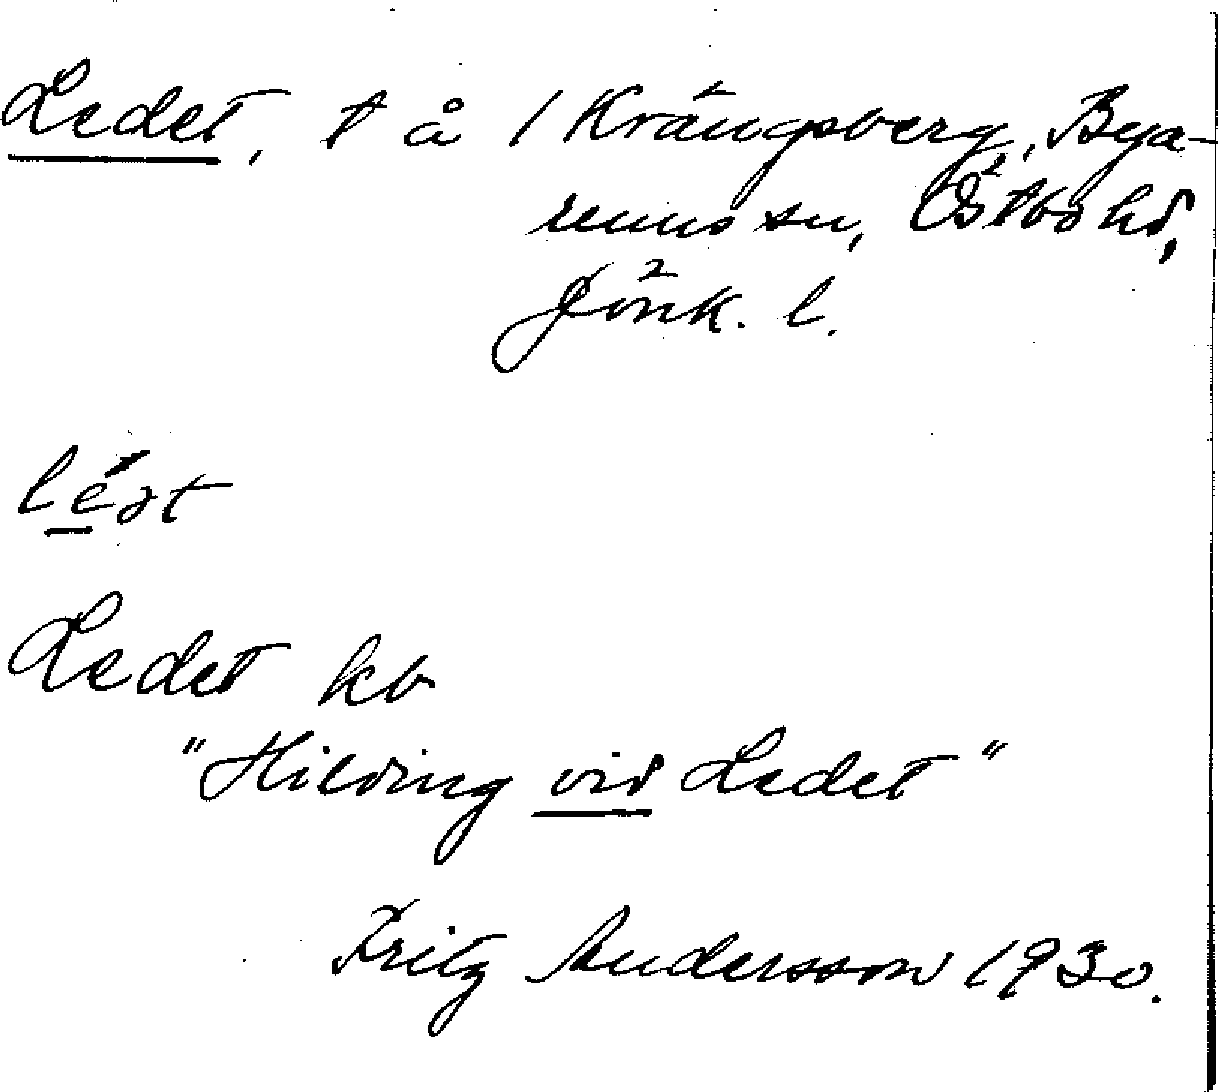 Ledet, t å 1 Krängsberg, Bya-
rums sn, Östbo hd,
Jönk. l.
léət
Ledet kb
"Hilding vid Ledet"
Fritz Andersson 1930.